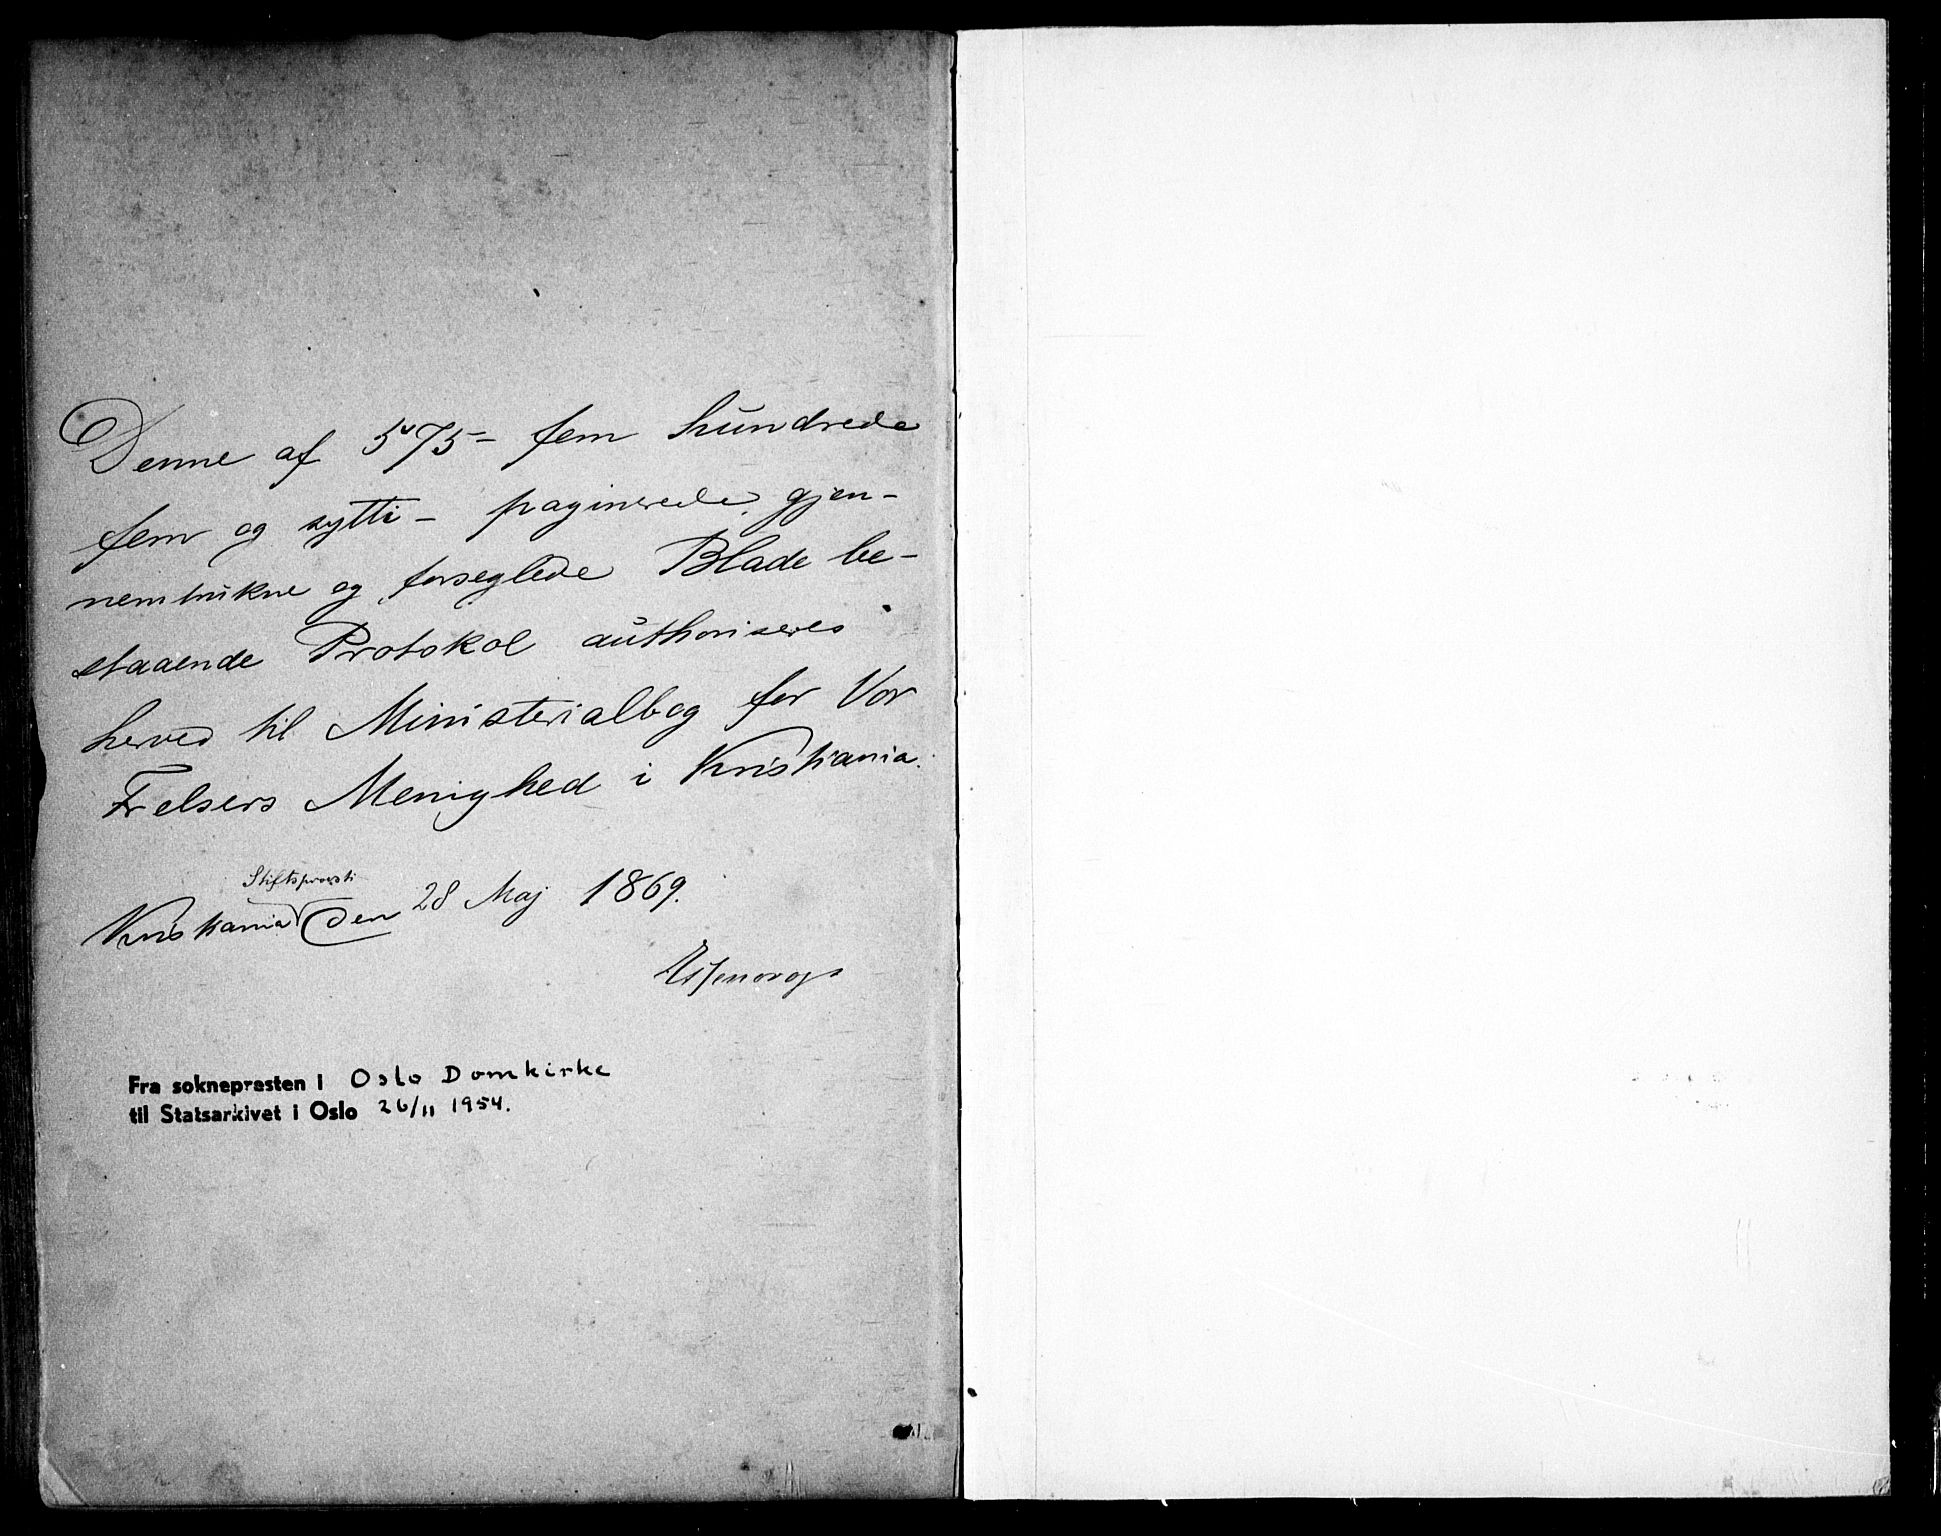 Denne af 575 - fem hundrede
fem og sytti - paginerede, gjen-
nemtrukne og forseglede Blade be-
staaende Protokol authoriseres
herved til Ministerialbog for Vor
Frelsers Menighed i Kristiania.
Stiftsprovsti
Kristiania den 28 Maj 1869.
Fra soknepresten i Oslo Domkirke
til Statsarkivet i Oslo 26/11 1954.